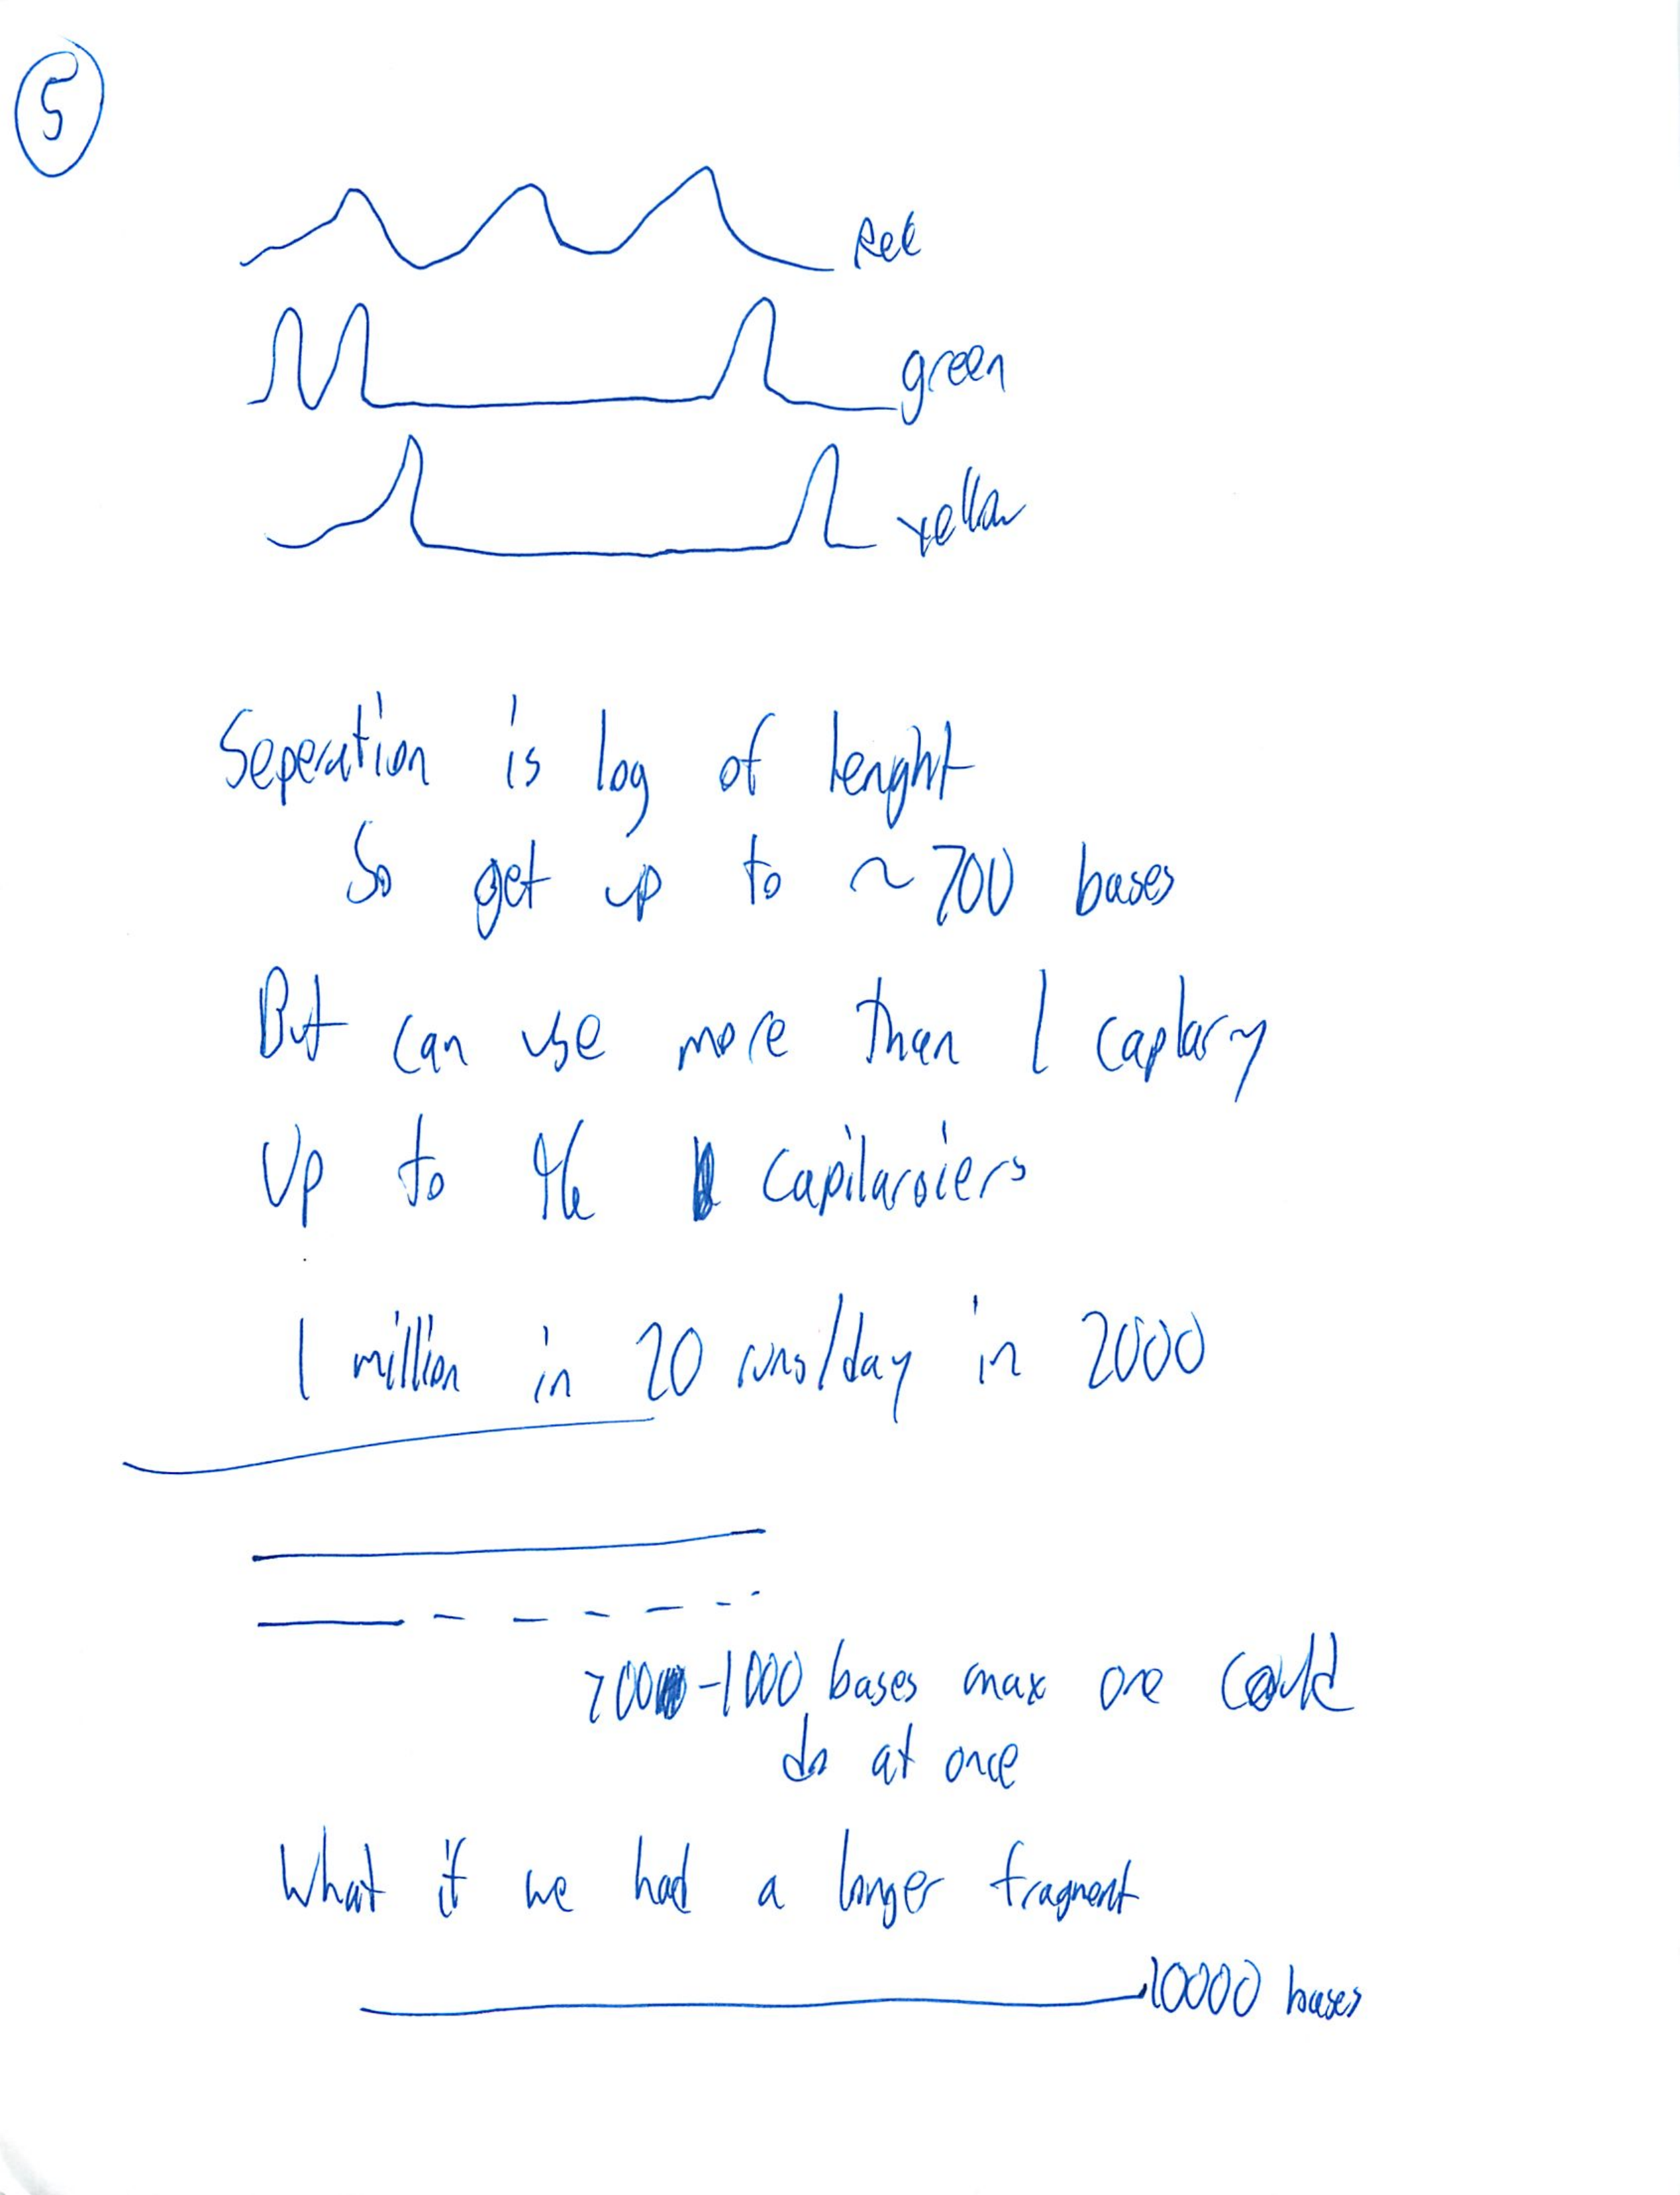 5
Red
green
yellow
Seperation is log of lenght
So get up to ~700 bases
But can use more than 1 caplary
Up to 96 capilaroiers
1 million in 20 runs/day in 2000
700-1000 bases max one could
do at once
What if we had a longer fragment
10000 bases